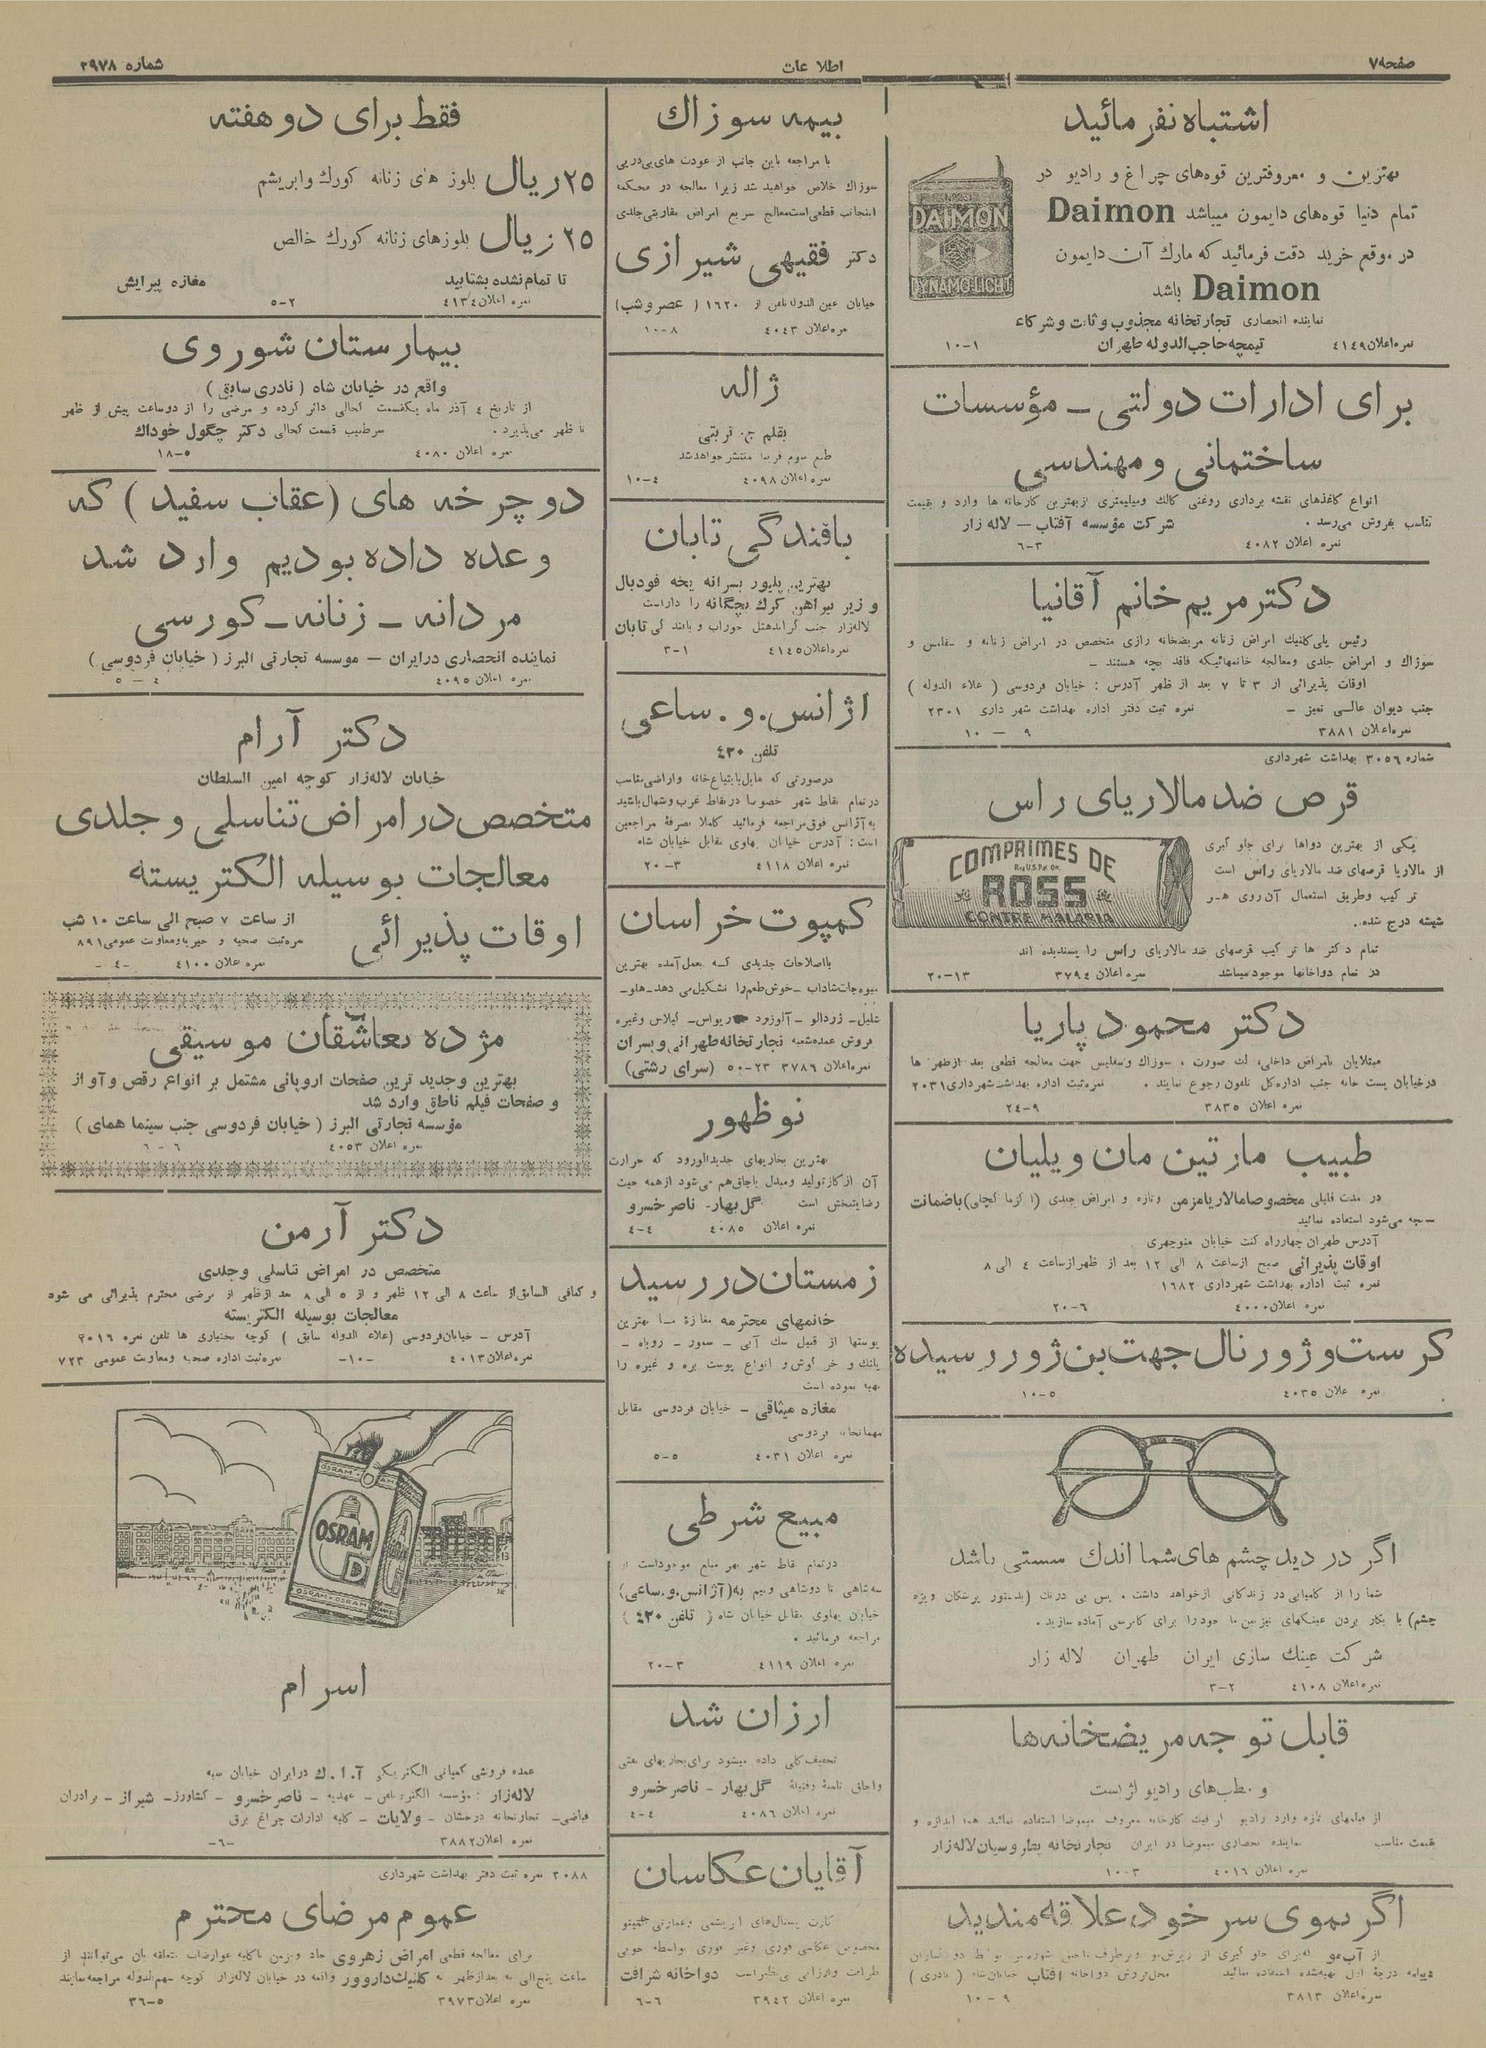 صفحه ۷
اطلاعات
شماره ۳۹۷۸
اشتباه نفرمائید
بهترین و معروفترین قوه‌های چراغ و رادیو در
تمام دنیا قوه‌های دایمون میباشد Daimon
در موقع خرید دقت فرمائید که مارك آن دایمون
Daimon باشد
DAIMON
DYNAMO-LIGHT
نماینده انحصاری تجارتخانه مجذوب و ثابت و شرکاء
تیمچه حاجب‌الدوله طهران
نمره اعلان ٤١٤٩ ۱۰-۱
برای ادارات دولتی - مؤسسات
ساختمانی و مهندسی
انواع کاغذهای نقشه برداری روغنی کالك ومیلیمتری ازبهترین کارخانه ها وارد و بقیمت
مناسب بفروش می‌رسد . شرکت مؤسسه آفتاب - لاله زار
نمره اعلان ٤۰۸۲ ۶-۳
دکتر مریم خانم آقانیا
رئیس پلی‌کلنیك امراض زنانه مریضخانه رازی متخصص در امراض زنانه و سفلیس و
سوزاك و امراض جلدی ومعالجه خانمهائیکه فاقد بچه هستند -
اوقات پذیرائی از ۳ تا ۷ بعد از ظهر آدرس : خیابان فردوسی ( علاء الدوله )
جنب دیوان عالی تمیز - نمره ثبت دفتر اداره بهداشت شهرداری ۲۳۰۱
نمره اعلان ۳۸۸۱ ۹ - ۱۰
شماره ۳۰۵٦ بهداشت شهرداری
قرص ضد مالاریای راس
یکی از بهترین دواها برای جلو گیری
از مالاریا قرصهای ضد مالاریای راس است
ترکیب وطریق استعمال آن روی هر
شیشه درج شده.
COMPRIMES DE
Reg U.S. Pat. On
ROSS
CONTRE MALARIA
تمام دکتر ها ترکیب قرصهای ضد مالاریای راس را پسندیده اند
در تمام دواخانها موجود میباشد نمره اعلان ۳۷۹٤ ۲۰-۱۳
دکتر محمود پاریا
مبتلایان بامراض داخلی، سوزاك وسفلیس جهت معالجه قطعی بعد ازظهر ها
درخیابان پست خانه جنب اداره کل تلفون رجوع نمایند . نمره ثبت اداره بهداشت شهرداری ۲۰۳۱
نمره اعلان ۳۸۳۵ ۲٤-۹
طبیب مارتین مان ویلیان
در مدت قلیلی مخصوصا مالاریا مزمن وتازه و امراض جلدی (اگزما کچلی) باضمانت
می‌شود استفاده نمائید
آدرس طهران چهارراه کنت خیابان منوچهری
اوقات پذیرائی صبح ازساعت ۸ الی ۱۲ بعد از ظهر ازساعت ٤ الی ۸
نمره ثبت اداره بهداشت شهرداری ۱۶۸۲
نمره اعلان ٤۰۰۰ ۲۰-۶
کرست و ژورنال جهت بن ژور رسیده
نمره اعلان ٤۰۳۵ ۱۰-۵
اگر در دید چشم های شما اندك سستی باشد
شما را از کامیابی در زندگانی بازخواهد داشت . پس بی درنك (بدستور پزشکان ویژه
چشم) با بکار بردن عینکهای خود را برای کامرسی آماده سازید .
شرکت عینك سازی ایران طهران لاله زار
نمره اعلان ٤۱۰۸ ۳-۲
قابل توجه مریضخانه‌ها
و مطب‌های رادیولژ است
از فیلمهای تازه وارد رادیو معروف استفاده نمائید همه اندازه و
قیمت مناسب نماینده انحصاری در ایران تجارتخانه پطروسیان لاله زار
نمره اعلان ٤۰۱۶ ۱۰-۳
اگر بموی سر خود علاقه مندید
برای جلو گیری از ریزش مو
درجه اول استفاده نمائید محل فروش دواخانه آفتاب خیابان شاه ( نادری )
نمره اعلان ۳۸۱۳ ۹ - ۱۰
بیمه سوزاك
با مراجعه باین جانب از عودت های بی‌درپی
سوزاك خلاص خواهید شد زیرا معالجه در محکمه
اینجانب قطعی است معالج سریع امراض مقاربتی جلدی
دکتر فقیهی شیرازی
خیابان عین الدوله تلفن ۱۶۲۰ ( عصر و شب)
نمره اعلان ٤۰٤۳ ۱۰-۸
ژاله
بقلم ج. تربتی
طبع سوم فردا منتشر خواهد شد
نمره اعلان ٤۰۹۸ ۱۰-٤
بافندگی تابان
بهترین پلیور پسرانه یخه فودبال
و زیر پیراهن کرك بچگانه را داراست
لاله‌زار جنب گراندهتل جوراب و بافندگی تابان
نمره اعلان ٤۱٤۵ ۳-۱
اژانس . و . ساعی
تلفن ٤۲۰
درصورتی که مایل بابتیاع خانه واراضی مناسب
در تمام نقاط شهر خصوصا در نقاط غرب و شمال باشید
به آژانس فوق مراجعه فرمائید کاملا بصرفه مراجعین
است : آدرس خیابان پهلوی مقابل خیابان شاه
نمره اعلان ٤۱۱۸ ۲۰-۳
کمپوت خراسان
بااصلاحات جدیدی که بعمل آمده بهترین
میوه‌جات شاداب - خوش طعم را تشکیل می دهد - هلو -
شلیل - زردالو - آلوزرد - ریواس - گیلاس وغیره
فروش عمده شعبه تجارتخانه طهرانی و پسران
نمره اعلان ۳۷۸۶ ۵۰-۲۳ (سرای رشتی)
نوظهور
بهترین بخاریهای جدیدالورود که حرارت
آن ازگاز تولید ومبدل باجاق هم می‌شود ازهمه حیث
رضایتبخش است گل بهار - ناصر خسرو
نمره اعلان ٤۰۸۵ ٤-٤
زمستان در رسید
خانمهای محترمه مغازه ما بهترین
پوستها از قبیل سك آبی - سمور - روباه -
و خرگوش و انواع پوست بره و غیره را
تهیه نموده است
مغازه میثاقی - خیابان فردوسی مقابل
مهمانخانه فردوسی
نمره اعلان ٤۰۳۱ ۵-۵
مبیع شرطی
درتمام نقاط شهر بهر مبلغ موجود است از
سه شاهی تا دوشاهی ونیم به (آژانس . و . ساعی)
خیابان پهلوی مقابل خیابان شاه ( تلفن ٤۲۰ )
مراجعه فرمائید .
نمره اعلان ٤۱۱۹ ۲۰-۳
ارزان شد
تخفیف کلی داده میشود برای بخاریهای نفتی
واجاق گل بهار - ناصر خسرو
نمره اعلان ٤۰۸۶ ٤-٤
آقایان عکاسان
کارت پستال‌های ابریشمی
مخصوص عکاسی فوری وغیر فوری بواسطه خوبی
ظرافت وارزانی بی‌نظیر است دواخانه شرافت
نمره اعلان ۳۹٤۲ ۶-۶
فقط برای دو هفته
۲۵ ریال بلوز های زنانه کورك وابریشم
۲۵ ریال بلوزهای زنانه کورك خالص
تا تمام نشده بشتابید مغازه پیرایش
نمره اعلان ٤۱۳٤ ۵-۲
بیمارستان شوروی
واقع در خیابان شاه ( نادری سابق )
از تاریخ ٤ آذر ماه یکقسمت کحالی دائر کرده و مرضی را از دوساعت پیش از ظهر
تا ظهر می‌پذیرد . سرطبیب قسمت کحالی دکتر چگول خوداك
نمره اعلان ٤۰۸۰ ۱۸-۵
دوچرخه های (عقاب سفید) که
وعده داده بودیم وارد شد
مردانه - زنانه - کورسی
نماینده انحصاری درایران - موسسه تجارتی البرز ( خیابان فردوسی )
نمره اعلان ٤۰۹۵ ٤ - ۵
دکتر آرام
خیابان لاله‌زار کوچه امین السلطان
متخصص در امراض تناسلی و جلدی
معالجات بوسیله الکتریسته
اوقات پذیرائی
از ساعت ۷ صبح الی ساعت ۱۰ شب
نمره ثبت صحیه و خیریه و معاونت عمومی ۸۹۱
نمره اعلان ٤۱۰۰ -٤-
مژده بعاشقان موسیقی
بهترین وجدید ترین صفحات اروپائی مشتمل بر انواع رقص و آواز
و صفحات فیلم ناطق وارد شد
مؤسسه تجارتی البرز ( خیابان فردوسی جنب سینما همای )
نمره اعلان ٤۰۵۳ ۶ - ۶
دکتر آرمن
متخصص در امراض تناسلی وجلدی
و کمافی السابق از ساعت ۸ الی ۱۲ ظهر و از ۵ الی ۸ بعد ازظهر از مرضی محترم پذیرائی می شود
معالجات بوسیله الکتریسته
آدرس - خیابان فردوسی (علاء الدوله سابق ) کوچه بختیاری ها تلفن نمره ۳۰۱۶
نمره اعلان ٤۰۱۳ -۱۰- نمره ثبت اداره صحیه ومعاونت عمومی ۷۲۳
OSRAM
OSRAM
D
OSRAM
اسرام
عمده فروشی کمپانی الکتریکی آ . ا . ك در ایران خیابان سپه
لاله زار : مؤسسه - عهدیه - ناصر خسرو - کشاورز - شیراز - برادران
فیاضی - تجارتخانه درخشان - ولایات - کلیه ادارات چراغ برق
نمره اعلان ۳۸۸۲ -۶-
۳۰۸۸ نمره ثبت دفتر بهداشت شهرداری
عموم مرضای محترم
برای معالجه قطعی امراض زهروی حاد و مزمن باکلیه عوارضات متعلقه بان می‌توانند از
ساعت پنج الی بعد ازظهر به کلنیك داروور واقعه در خیابان لاله‌زار کوچه مراجعه نمایند
نمره اعلان ۳۹۷۳ ۳۶-۵